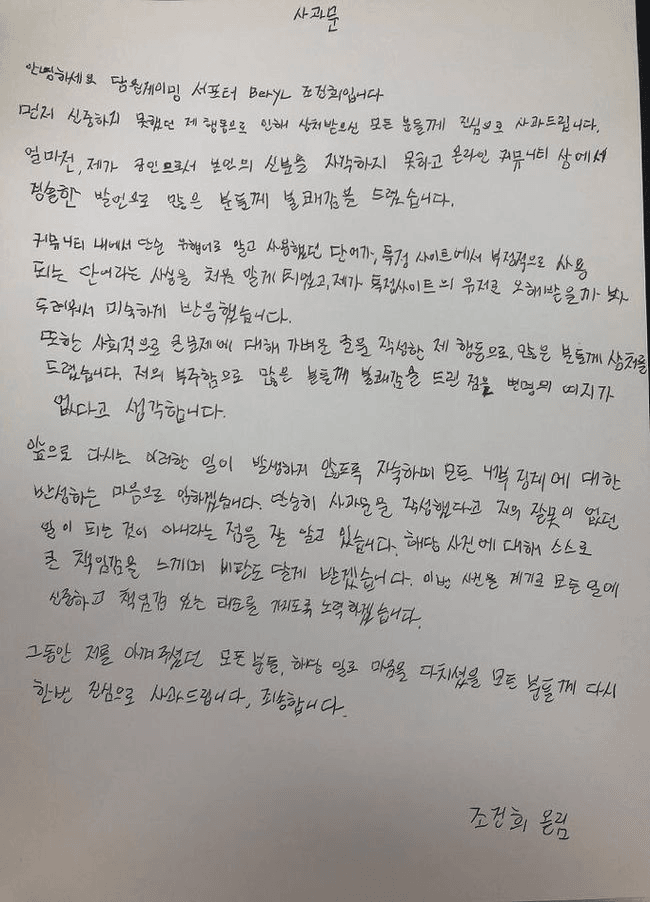 사과문
안녕하세요 담원게이밍 서포터 BeryL 조건희입니다
먼저 신중하지 못했던 제 행동으로 인해 상처받으신 모든 분들께 진심으로 사과드립니다.
얼마전, 제가 공인으로서 본인의 신분을 자각하지 못하고 온라인 커뮤니티 상에서
경솔한 발언으로 많은 분들께 불쾌감을 드렸습니다.
커뮤니티 내에서 단순 유행어로 알고 사용했던 단어가, 특정 사이트에서 부정적으로 사용
되는 단어라는 사실을 처음 알게 되었고, 제가 특정사이트의 유저로 오해받을까 봐
두려워서 미숙하게 반응했습니다.
또한 사회적으로 큰 문제에 대해 가벼운 글을 작성한 제 행동으로, 많은 분들께 상처를
드렸습니다. 저의 부주함으로 많은 분들께 불쾌감을 드린 점을 변명의 여지가
없다고 생각합니다.
앞으로 다시는 이러한 일이 발생하지 않도록 자숙하며 모든 내부 징계에 대한
반성하는 마음으로 임하겠습니다. 단순히 사과문을 작성했다고 저의 잘못이 없던
일이 되는 것이 아니라는 점을 잘 알고 있습니다. 해당 사건에 대해 스스로
큰 책임감을 느끼며 비판도 달게 받겠습니다. 이번 사건을 계기로 모든 일에
신중하고 책임감 있는 태도를 가지도록 노력하겠습니다.
그동안 저를 아껴주셨던 모든 분들, 해당 일로 마음을 다치셨을 모든 분들께 다시
한번 진심으로 사과드립니다, 죄송합니다.
조건희 올림